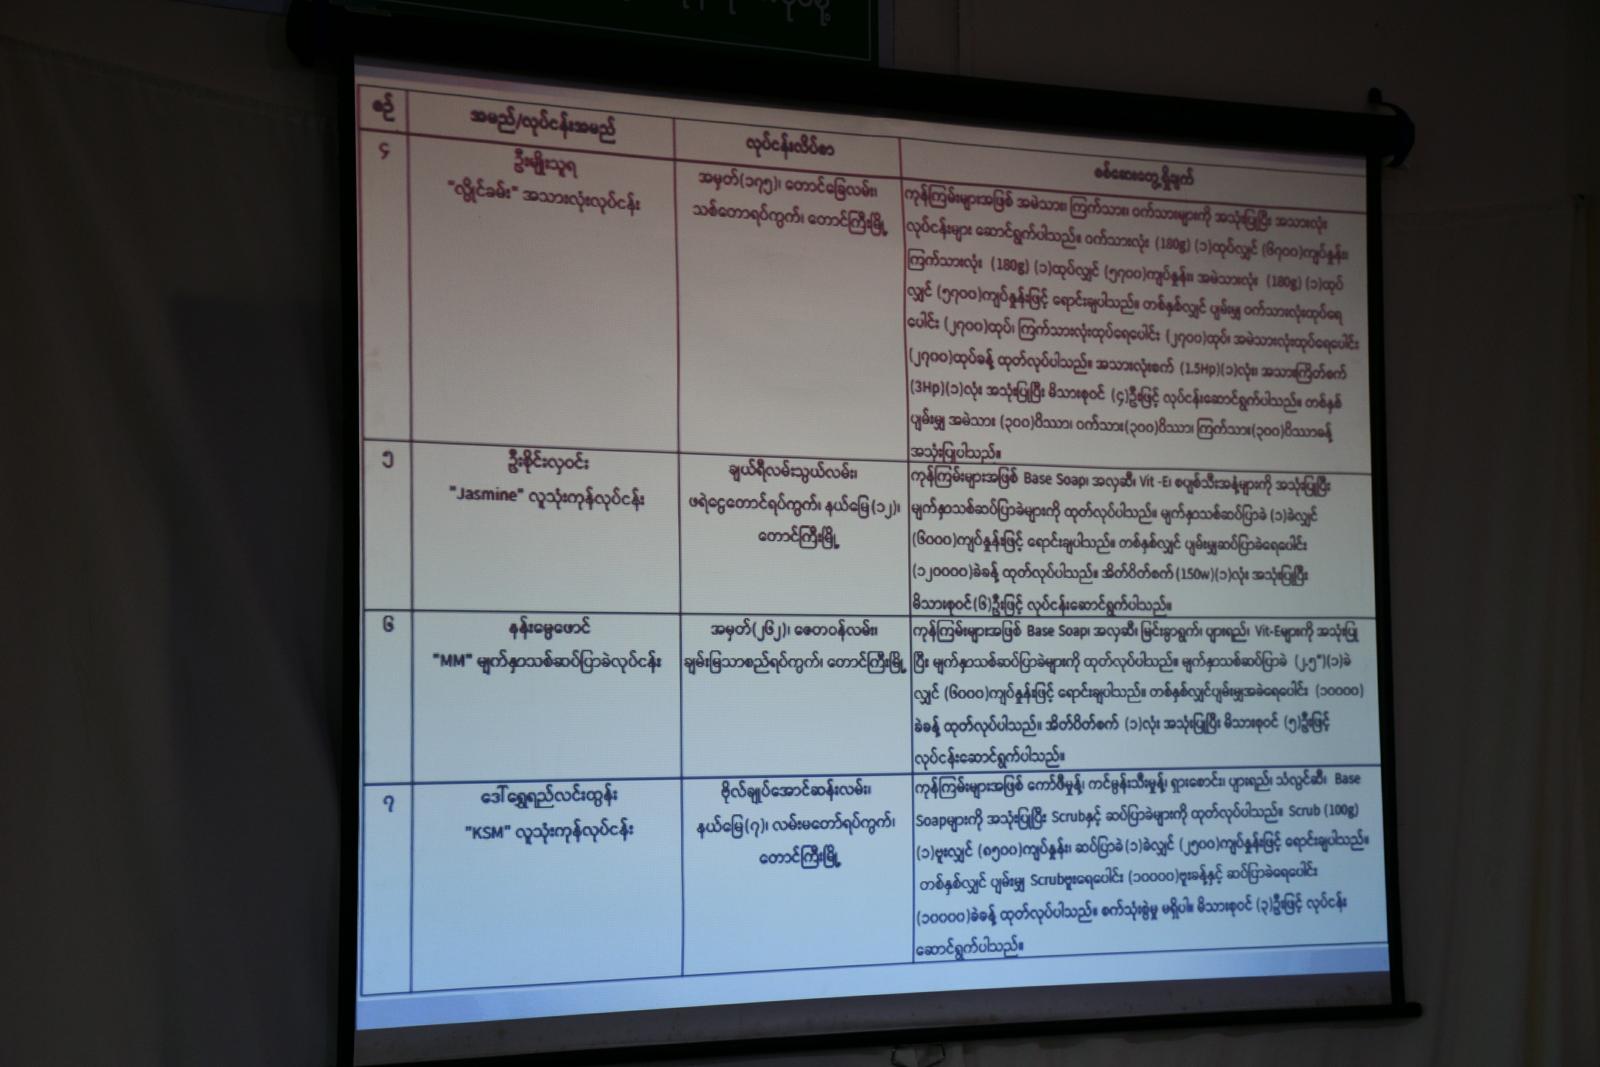 စဉ်
အမည်/လုပ်ငန်းအမည်
လုပ်ငန်းလိပ်စာ
စစ်ဆေးတွေ့ရှိချက်
၄
ဦးမျိုးသူရ
"လှိုင်ခမ်း" အသားလုံးလုပ်ငန်း
အမှတ်(၁၇၅)၊ တောင်ခြေလမ်း၊
သစ်တောရပ်ကွက်၊ တောင်ကြီးမြို့
ကုန်ကြမ်းများအဖြစ် အမဲသား၊ ကြက်သား၊ ဝက်သားများကို အသုံးပြုပြီး အသားလုံး
လုပ်ငန်းများ ဆောင်ရွက်ပါသည်။ ဝက်သားလုံး (180g) (၁)ထုပ်လျှင် (၆၇၀၀)ကျပ်နှုန်း၊
ကြက်သားလုံး (180g) (၁)ထုပ်လျှင် (၅၇၀၀)ကျပ်နှုန်း၊ အမဲသားလုံး (180g) (၁)ထုပ်
လျှင် (၅၇၀၀)ကျပ်နှုန်းဖြင့် ရောင်းချပါသည်။ တစ်နှစ်လျှင် ပျမ်းမျှ ဝက်သားလုံးထုပ်ရေ
ပေါင်း (၂၇၀၀)ထုပ်၊ ကြက်သားလုံးထုပ်ရေပေါင်း (၂၇၀၀)ထုပ်၊ အမဲသားလုံးထုပ်ရေပေါင်း
(၂၇၀၀)ထုပ်ခန့် ထုတ်လုပ်ပါသည်။ အသားလုံးစက် (1.5Hp)(၁)လုံး၊ အသားကြိတ်စက်
(3Hp)(၁)လုံး အသုံးပြုပြီး မိသားစုဝင် (၄)ဦးဖြင့် လုပ်ငန်းဆောင်ရွက်ပါသည်။ တစ်နှစ်
ပျမ်းမျှ အမဲသား (၃၀၀)ပိဿာ၊ ဝက်သား(၃၀၀)ပိဿာ၊ ကြက်သား(၃၀၀)ပိဿာခန့်
အသုံးပြုပါသည်။
၅
ဦးစိုင်းလှဝင်း
"Jasmine" လူသုံးကုန်လုပ်ငန်း
ချယ်ရီလမ်းသွယ်လမ်း၊
ဖရဲငွေတောင်ရပ်ကွက်၊ နယ်မြေ(၁၂)၊
တောင်ကြီးမြို့
ကုန်ကြမ်းများအဖြစ် Base Soap၊ အလှဆီ၊ Vit -E၊ စပျစ်သီးအနှံ့များကို အသုံးပြုပြီး
မျက်နှာသစ်ဆပ်ပြာခဲများကို ထုတ်လုပ်ပါသည်။ မျက်နှာသစ်ဆပ်ပြာခဲ (၁)ခဲလျှင်
(၆၀၀၀)ကျပ်နှုန်းဖြင့် ရောင်းချပါသည်။ တစ်နှစ်လျှင် ပျမ်းမျှဆပ်ပြာခဲရေပေါင်း
(၁၂၀၀၀၀)ခဲခန့် ထုတ်လုပ်ပါသည်။ အိတ်ပိတ်စက်(150w)(၁)လုံး အသုံးပြုပြီး
မိသားစုဝင်(၆)ဦးဖြင့် လုပ်ငန်းဆောင်ရွက်ပါသည်။
၆
နန်းမွေဖောင်
"MM" မျက်နှာသစ်ဆပ်ပြာခဲလုပ်ငန်း
အမှတ်(၂၆၂)၊ ဇေတဝန်လမ်း၊
ချမ်းမြသာစည်ရပ်ကွက်၊ တောင်ကြီးမြို့
ကုန်ကြမ်းများအဖြစ် Base Soap၊ အလှဆီ၊ မြင်းခွာရွက်၊ ပျားရည်၊ Vit-Eများကို အသုံးပြု
ပြီး မျက်နှာသစ်ဆပ်ပြာခဲများကို ထုတ်လုပ်ပါသည်။ မျက်နှာသစ်ဆပ်ပြာခဲ (၂.၅")(၁)ခဲ
လျှင် (၆၀၀၀)ကျပ်နှုန်းဖြင့် ရောင်းချပါသည်။ တစ်နှစ်လျှင်ပျမ်းမျှအခဲရေပေါင်း (၁၀၀၀၀)
ခဲခန့် ထုတ်လုပ်ပါသည်။ အိတ်ပိတ်စက် (၁)လုံး အသုံးပြုပြီး မိသားစုဝင် (၅)ဦးဖြင့်
လုပ်ငန်းဆောင်ရွက်ပါသည်။
၇
ဒေါ်ရွှေရည်လင်းထွန်း
"KSM" လူသုံးကုန်လုပ်ငန်း
ဗိုလ်ချုပ်အောင်ဆန်းလမ်း၊
နယ်မြေ(၇)၊ လမ်းမတော်ရပ်ကွက်၊
တောင်ကြီးမြို့
ကုန်ကြမ်းများအဖြစ် ကော်ဖီမှုန့်၊ ကင်မွန်းသီးမှုန့်၊ ရှားစောင်း၊ ပျားရည်၊ သံလွင်ဆီ၊ Base
Soapများကို အသုံးပြုပြီး Scrubနှင့် ဆပ်ပြာခဲများကို ထုတ်လုပ်ပါသည်။ Scrub (100g)
(၁)ဗူးလျှင် (၈၅၀၀)ကျပ်နှုန်း၊ ဆပ်ပြာခဲ(၁)ခဲလျှင် (၂၅၀၀)ကျပ်နှုန်းဖြင့် ရောင်းချပါသည်။
တစ်နှစ်လျှင် ပျမ်းမျှ Scrubဗူးရေပေါင်း (၁၀၀၀၀)ဗူးခန့်နှင့် ဆပ်ပြာခဲရေပေါင်း
(၁၀၀၀၀)ခဲခန့် ထုတ်လုပ်ပါသည်။ စက်သုံးစွဲမှု မရှိပါ။ မိသားစုဝင် (၃)ဦးဖြင့် လုပ်ငန်း
ဆောင်ရွက်ပါသည်။